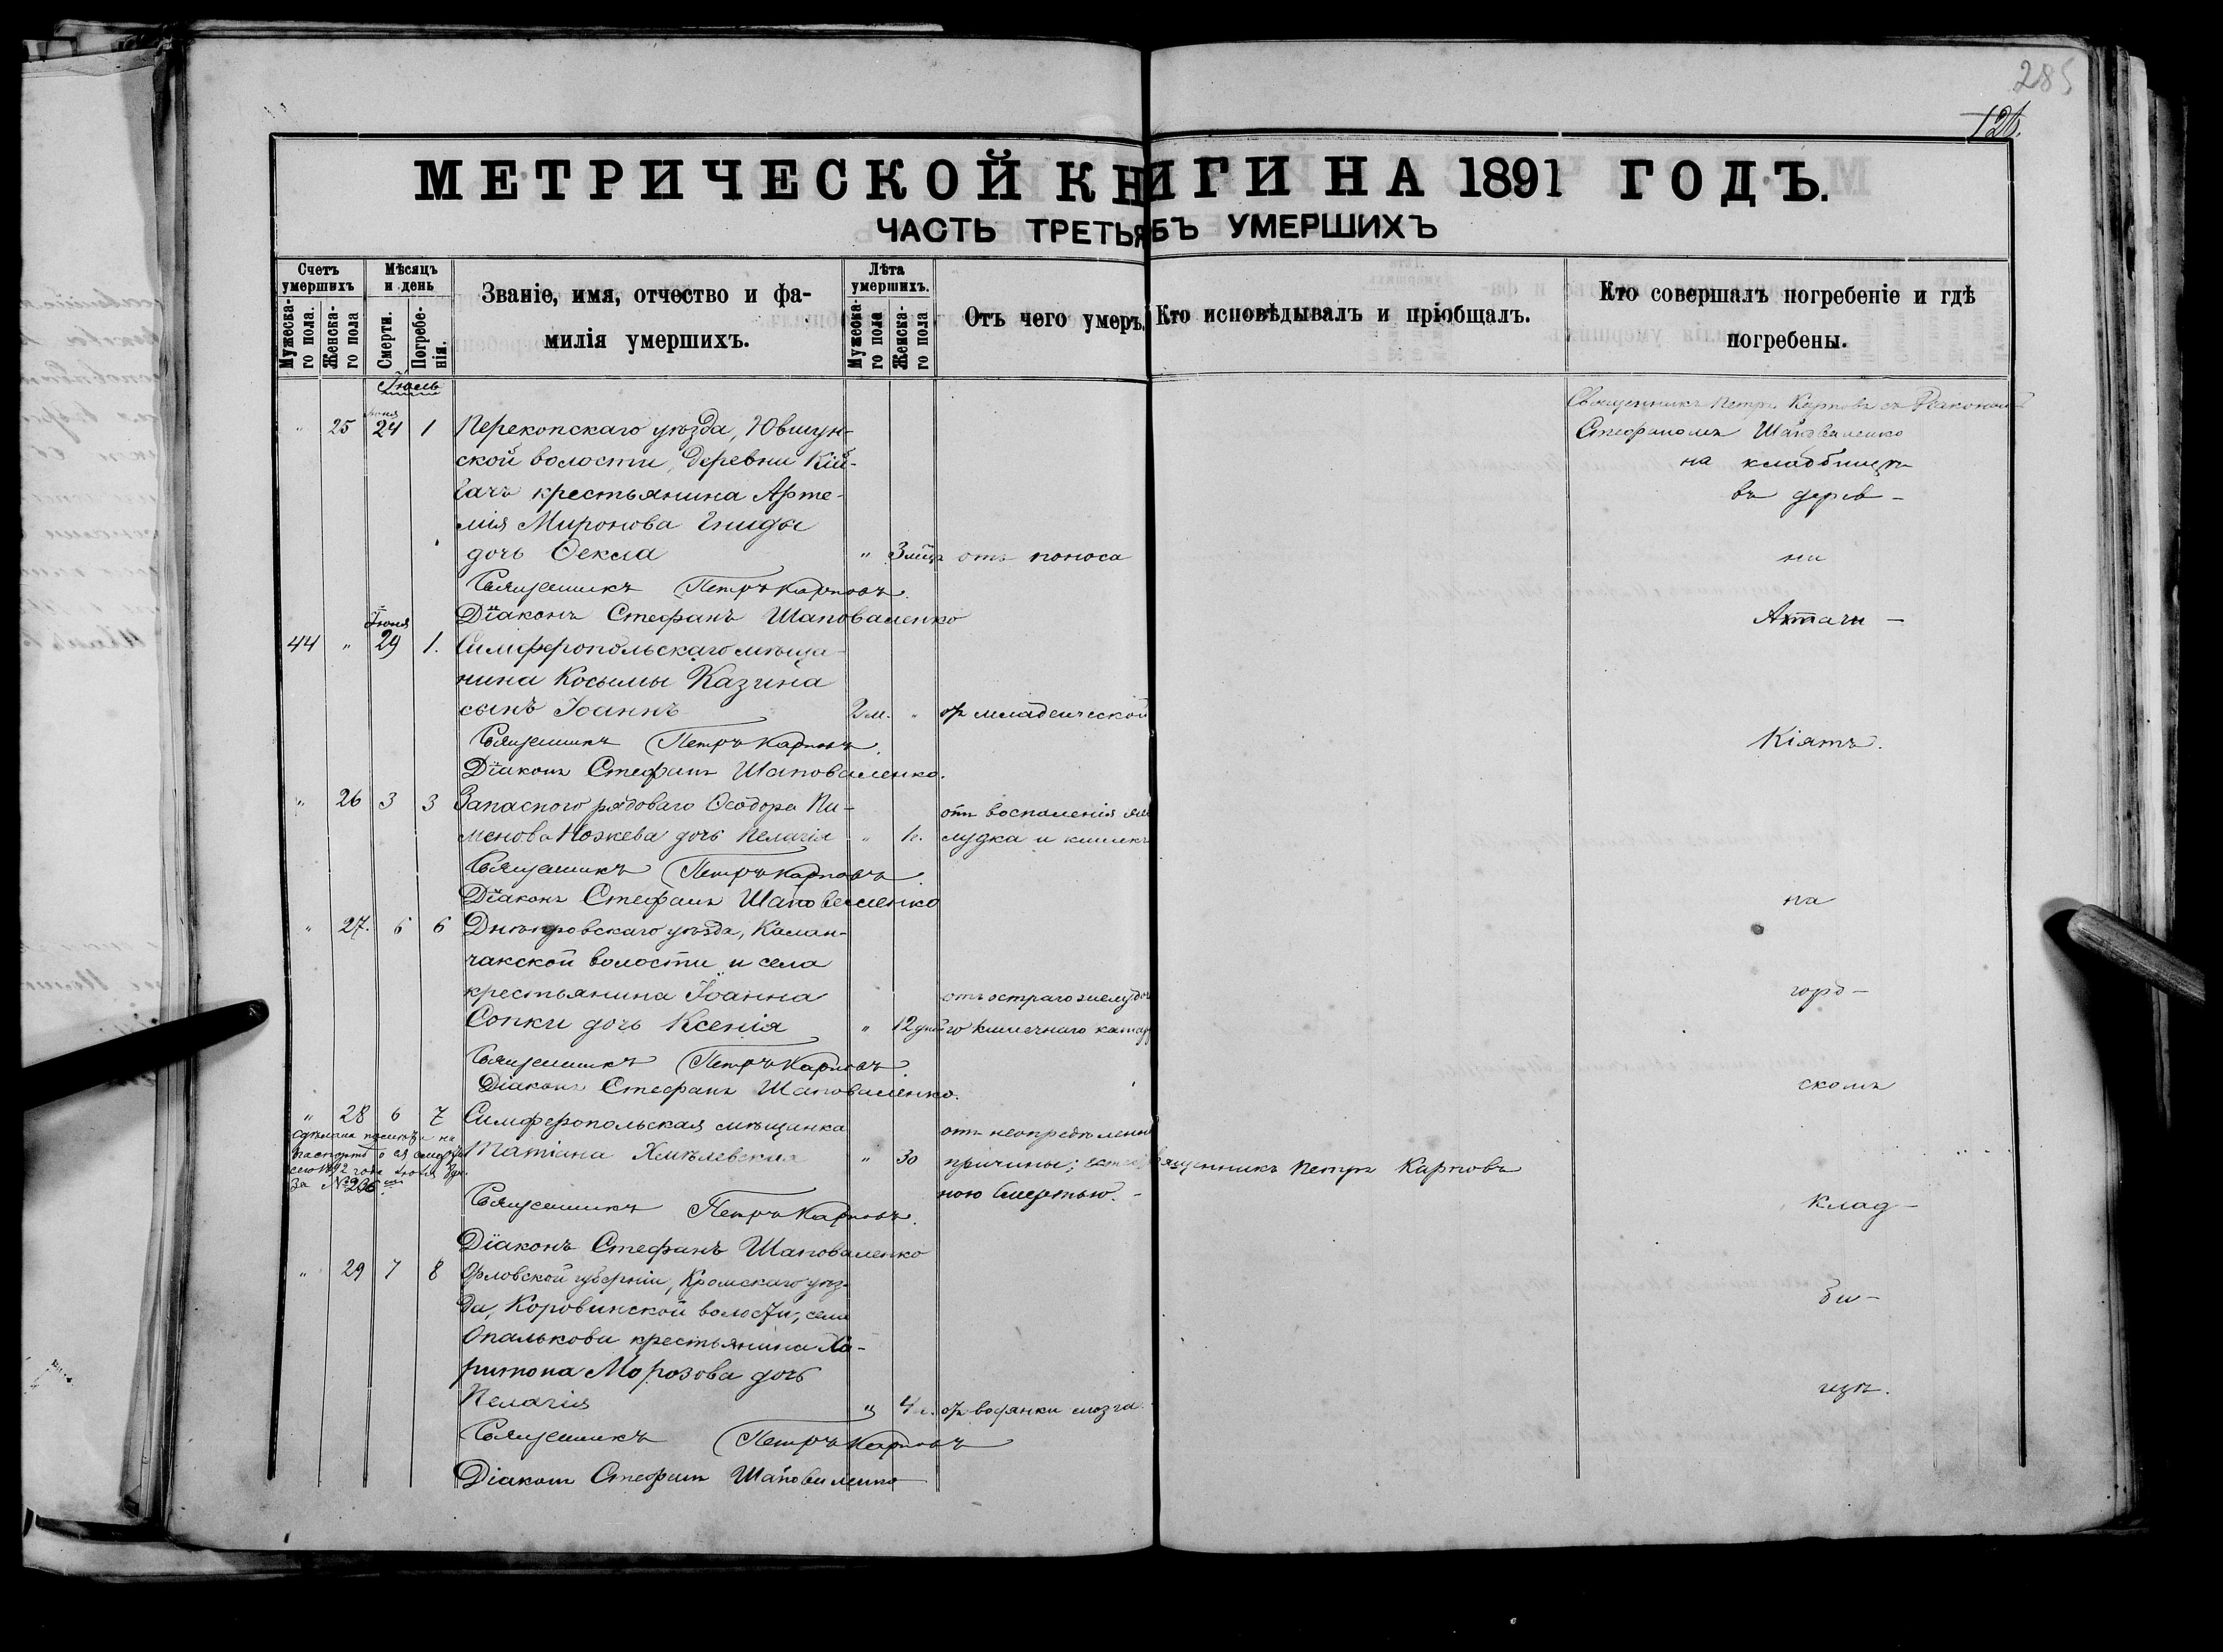 285
126.
МЕТРИЧЕСКОЙ КНИГИ НА 1891 ГОДЪ.
ЧАСТЬ ТРЕТЬЯ БЪ УМЕРШИХЪ
Счетъ умершихъ
Мужеска-го пола.
Женска-го пола
Мѣсяцъ и день
Смерти.
Погребе-нія.
Званіе, имя, отчество и фа-
милія умершихъ.
Лѣта умершихъ.
Мужеска-го пола
Женска-го пола.
Отъ чего умеръ.
Кто исповѣдывалъ и пріобщалъ.
Кто совершалъ погребеніе и гдѣ
погребены.
Іюль
Священникъ Петръ Карповъ съ Діакономъ
Іюня
" 25 24 1 Перекопскаго уѣзда, Юшун-
Стефаномъ Шаповаленко
ской волости, деревни Кій-
на кладбищѣ
крестьянина Арте-
въ дерев-
мія Миронова Гниды
дочь Ѳекла " 3 мѣц. отъ поноса
ни
Священникъ Петръ Карповъ.
Діаконъ Стефанъ Шаповаленко
Іюня
44 " 29 1. Симферопольскаго мѣща-
нина Косьмы Казина
сынъ Іоаннъ 2 м. " отъ младенческой
Священникъ Петръ Карповъ.
Кіятъ.
Діаконъ Стефанъ Шаповаленко.
" 26 3 3 Запаснаго рядоваго Ѳеодора Пи-
отъ воспаленія же
менова Ножева дочь Пелагія " лудка и кишекъ
Священникъ Петръ Карповъ
Діаконъ Стефанъ Шаповаленко
на
" 27. 6 6 Днѣпровскаго уѣзда, Калан-
чакской волости и села
крестьянина Іоанна отъ остраго желудоч
город-
Сопки дочь Ксенія " 12 дней го кишечнаго катар
Священникъ Петръ Карповъ.
Діаконъ Стефанъ Шаповаленко.
скомъ
" 28 6 7 Симферопольская мѣщанка
отъ неопредѣленн
паспортѣ о ея смерти
Татіана Хмѣлевская " 30 причины; священникъ Петръ Карповъ
за № 206
ною смертью. -
Священникъ Петръ Карповъ.
клад-
Діаконъ Стефанъ Шаповаленко
" 29 7 8 Орловской губерніи, Кромскаго уѣз-
да, Коровинской волости, села
би-
Опалькова крестьянина Ха-
ритона Морозова дочь
щѣ.
Пелагія " 4 г. отъ водянки мозга.
Священникъ Петръ Карповъ
Діаконъ Стефанъ Шаповаленко